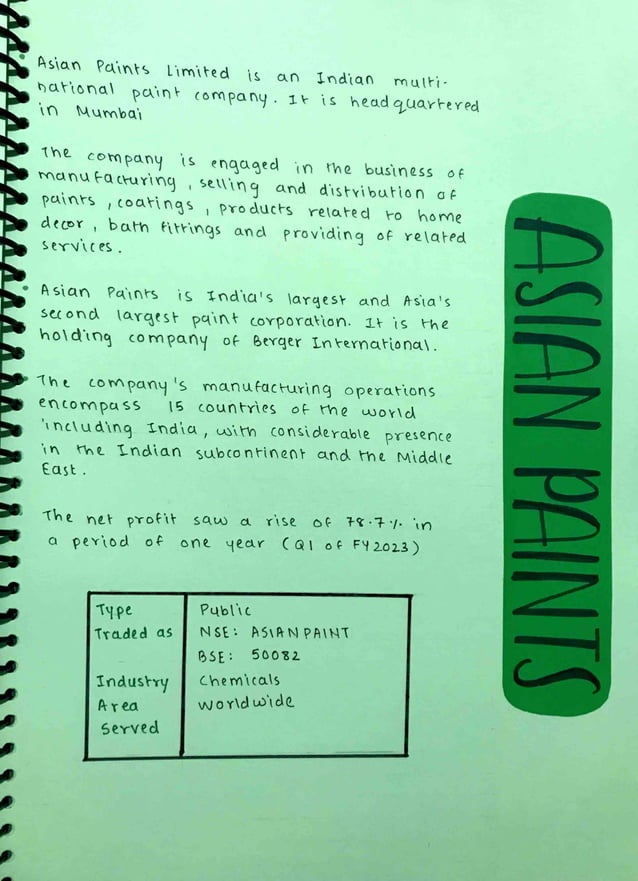 Asian Paints Limited is an Indian multi-
national paint company. It is headquartered
in Mumbai
The company is engaged in the business of
manufacturing, selling and distribution of
paints, coatings, products related to home
decor, bath fittings and providing of related
services.
Asian Paints is India's largest and Asia's
second largest paint corporation. It is the
holding company of Berger International.
The company's manufacturing operations
encompass 15 countries of the world
including India, with considerable presence
in the Indian subcontinent and the Middle
East.
The net profit saw a rise of 78.7% in
a period of one year (Q1 of FY2023)
ASIAN PAINTS
Type Public
Traded as NSE: ASIANPAINT
BSE: 50082
Industry Chemicals
Area Worldwide
Served